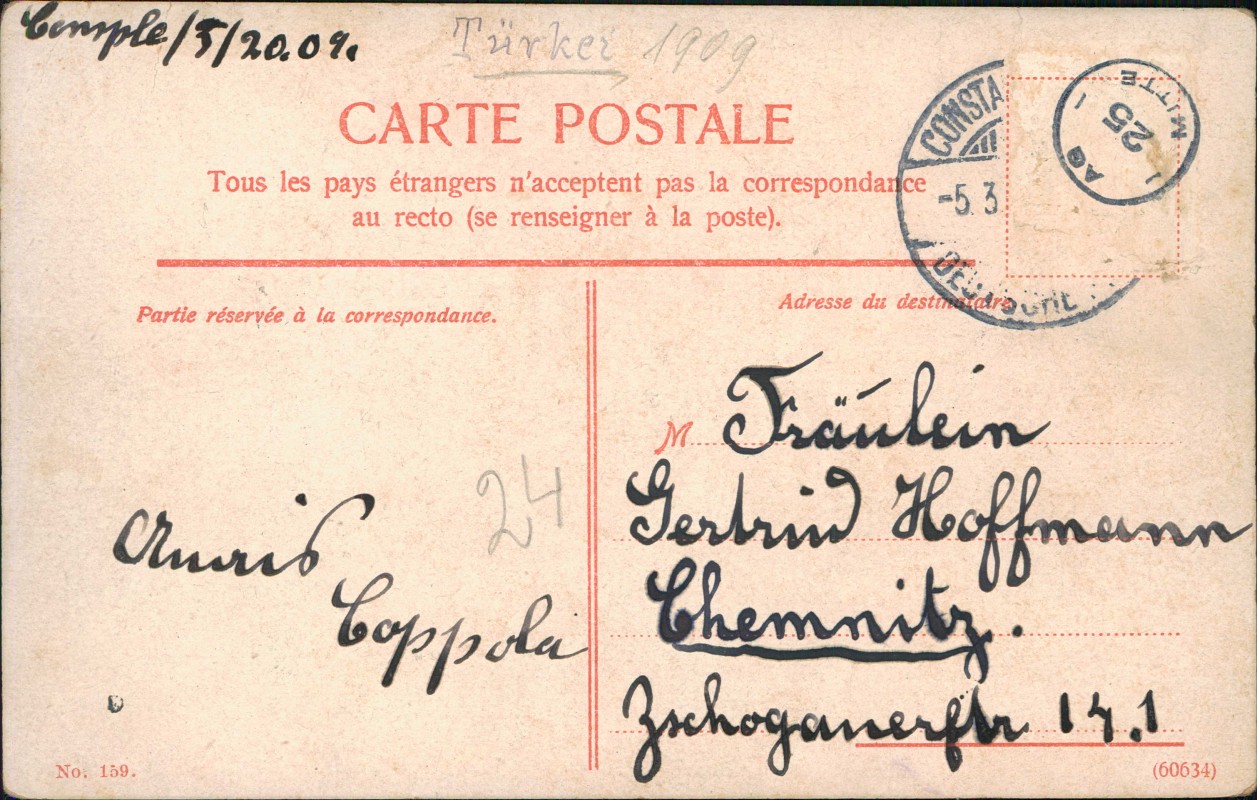 Consple/5/20.09.
Türkei 1909
CARTE POSTALE
Tous les pays étrangers n'acceptent pas la correspondance
au recto (se renseigner à la poste).
CONSTA
-5. 3
DEUTSCHE
MITTE
25
AG
Partie réservée à la correspondance.
Adresse du destinataire
M Fräulein
Gertrud Hoffmann
Chemnitz.
Zschoganerstr 14.1
24
Anais
Coppola
No. 159.
(60634)